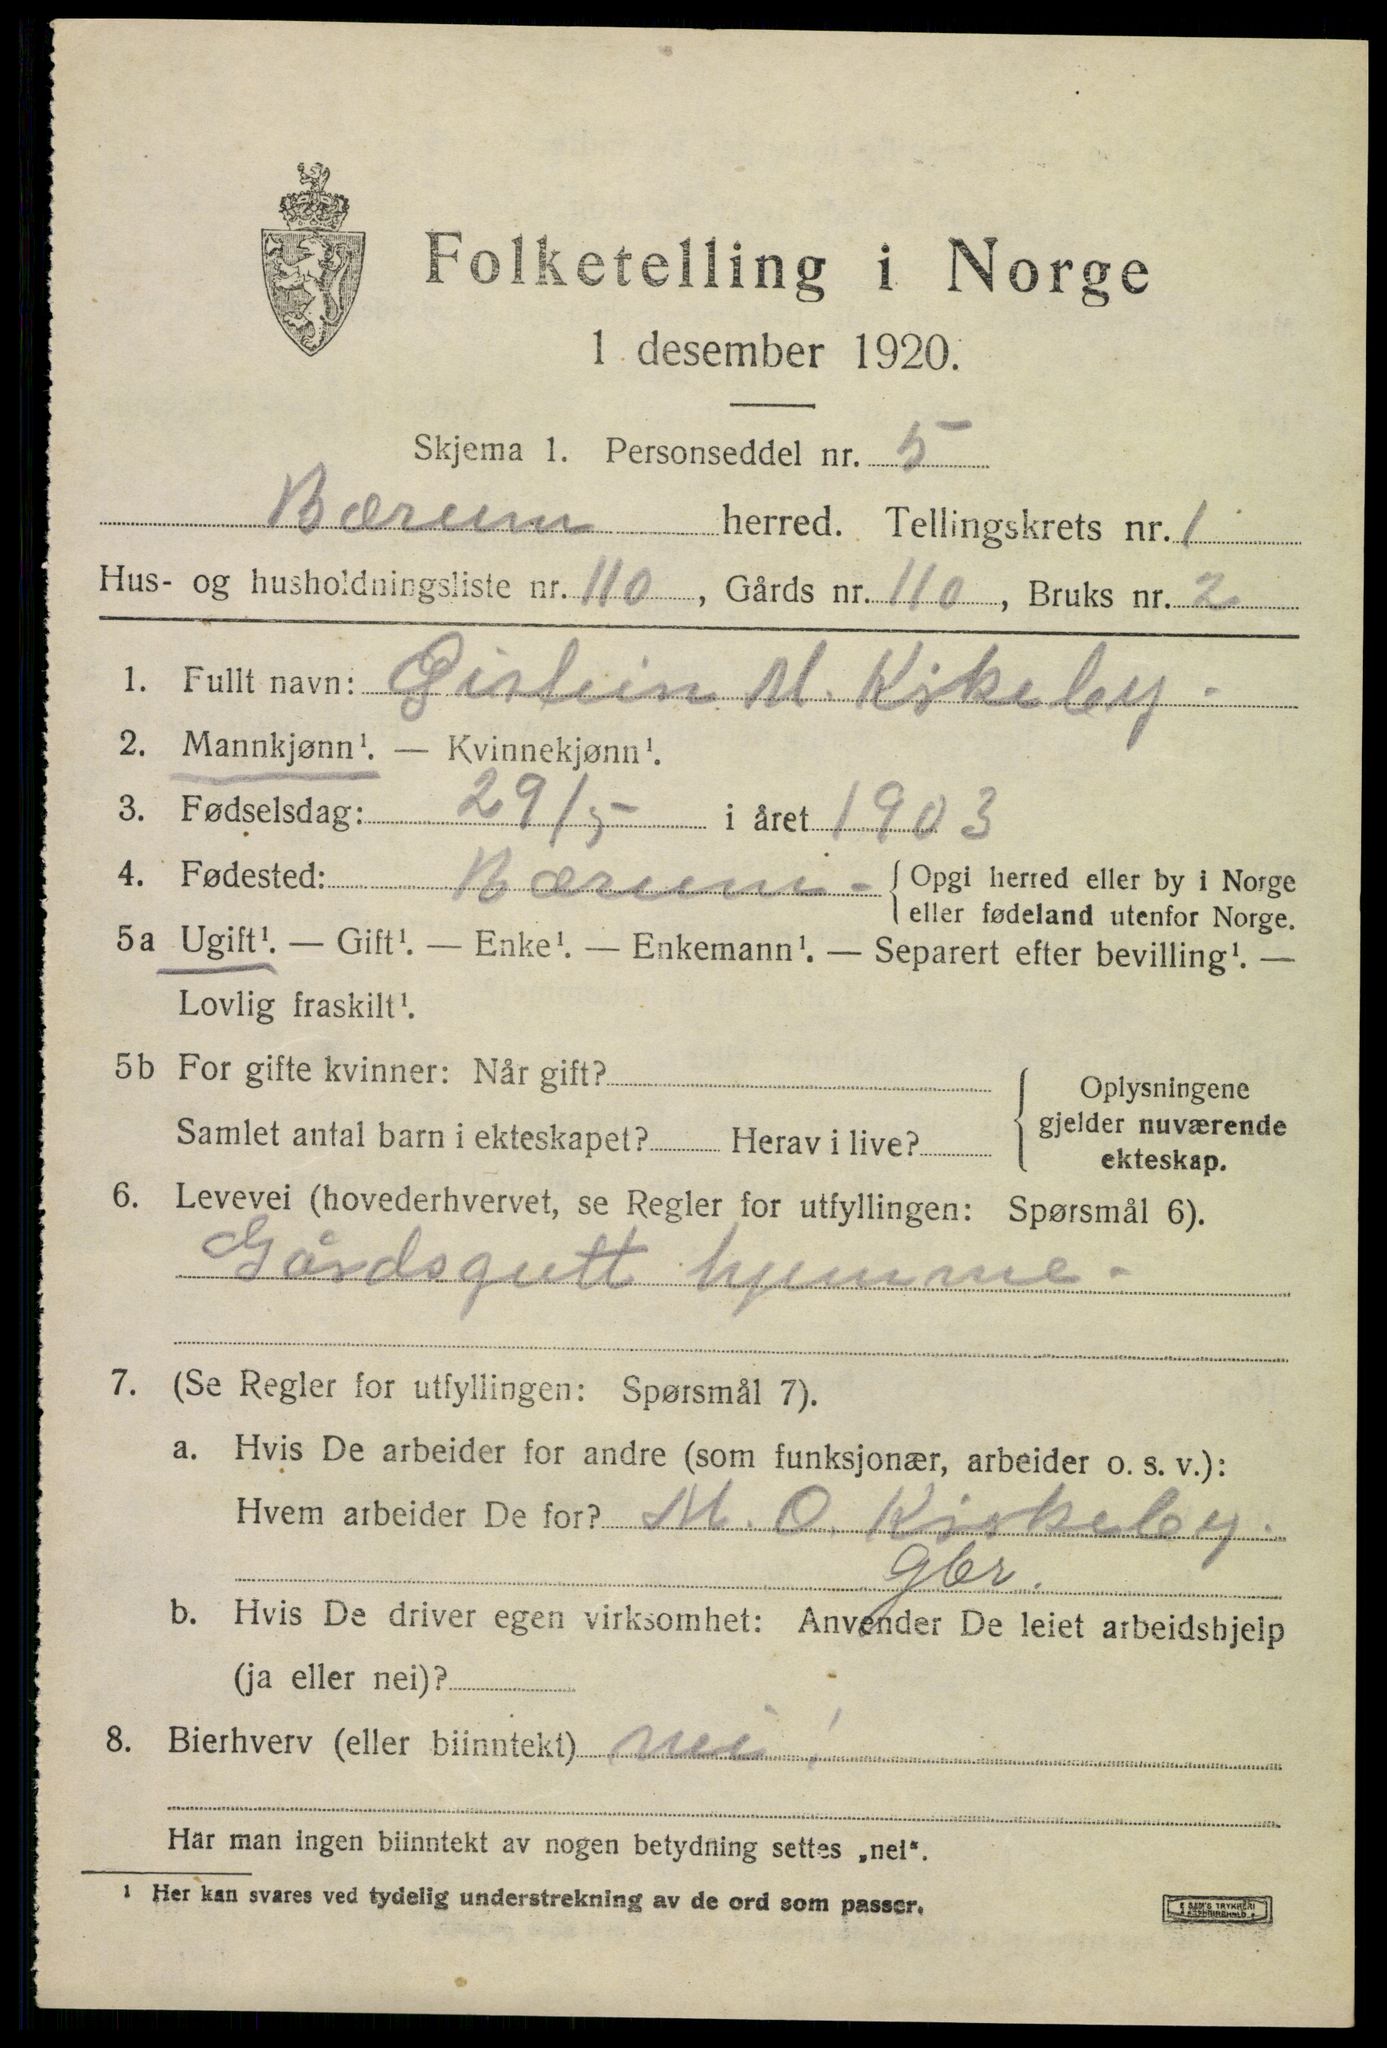 Folketelling i Norge
1 desember 1920.
Skjema 1. Personseddel nr. 5
Bærum herred. Tellingskrets nr. 1
Hus- og husholdningsliste nr. 110, Gårds nr. 110, Bruks nr. 2
1. Fullt navn: Øistein M. Kirkeby.
2. Mannkjønn¹. — Kvinnekjønn¹.
3. Fødselsdag: 29/5 i året 1903
4. Fødested: Bærum - { Opgi herred eller by i Norge
eller fødeland utenfor Norge.
5a Ugift¹. — Gift¹. — Enke¹. — Enkemann¹. — Separert efter bevilling¹. —
Lovlig fraskilt¹.
5b For gifte kvinner: Når gift?
Samlet antal barn i ekteskapet? Herav i live?
Oplysningene
gjelder nuværende
ekteskap.
6. Levevei (hovederhvervet, se Regler for utfyllingen: Spørsmål 6).
Gårdsgutt hjemme -
7. (Se Regler for utfyllingen: Spørsmål 7).
a. Hvis De arbeider for andre (som funksjonær, arbeider o. s. v.):
Hvem arbeider De for? M. O. Kirkeby.
Gbr.
b. Hvis De driver egen virksomhet: Anvender De leiet arbeidshjelp
(ja eller nei)?
8. Bierhverv (eller biinntekt) nei!
Har man ingen biinntekt av nogen betydning settes „nei“.
¹ Her kan svares ved tydelig understrekning av de ord som passer.